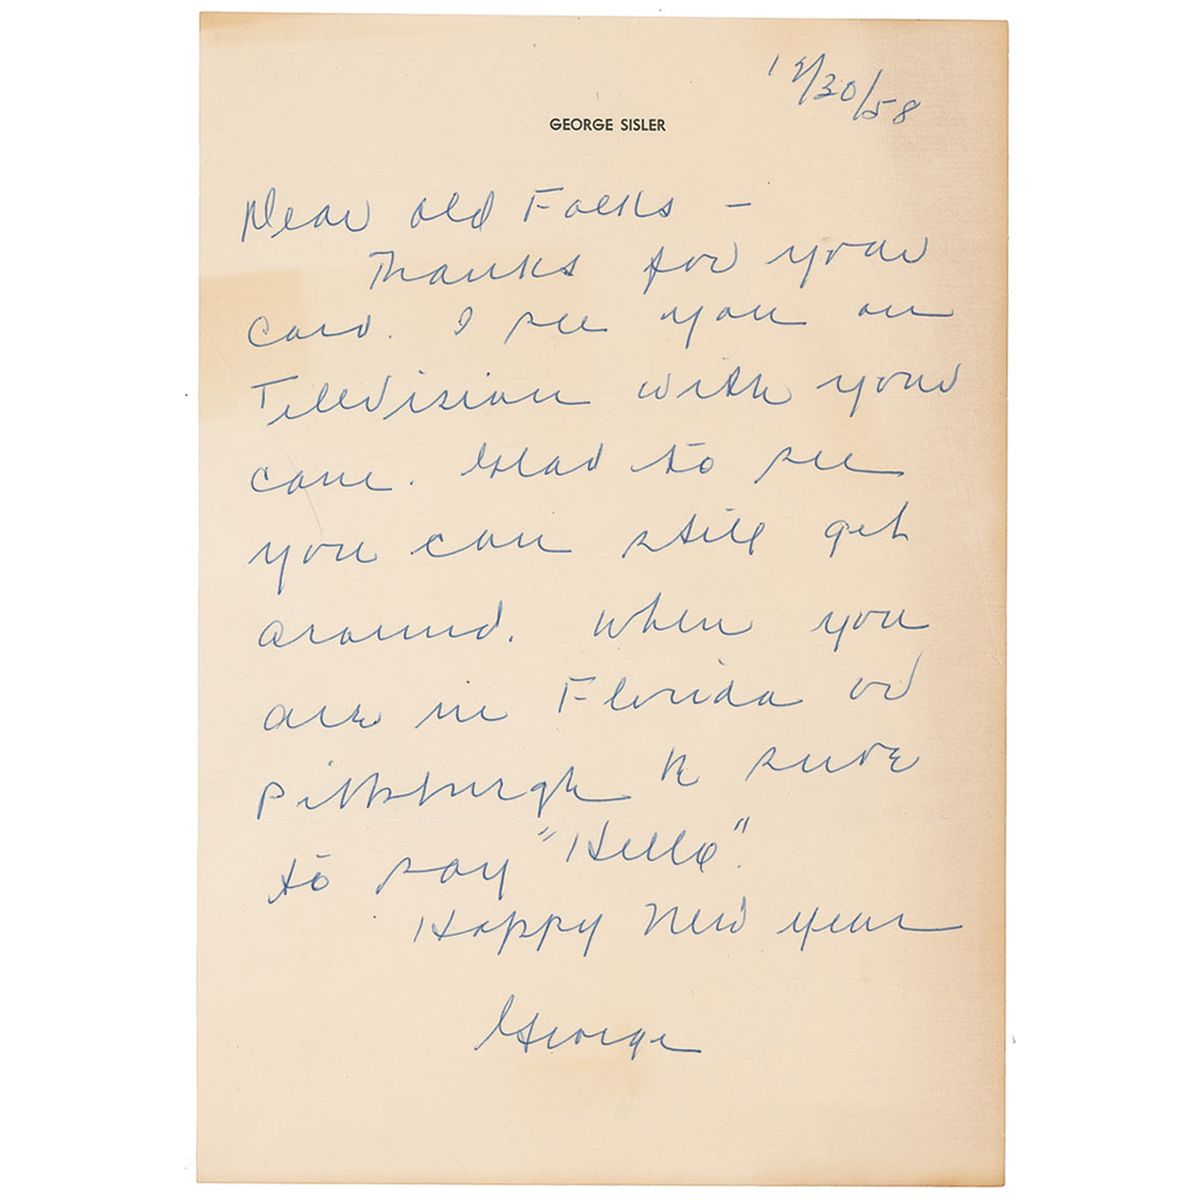 12/30/58
GEORGE SISLER
Dear old Folks -
Thanks for your
card. I see you on
Television with your
cane. Glad to see
you can still get
around. When you
are in Florida or
Pittsburgh be sure
to say "Hello".
Happy New year
George